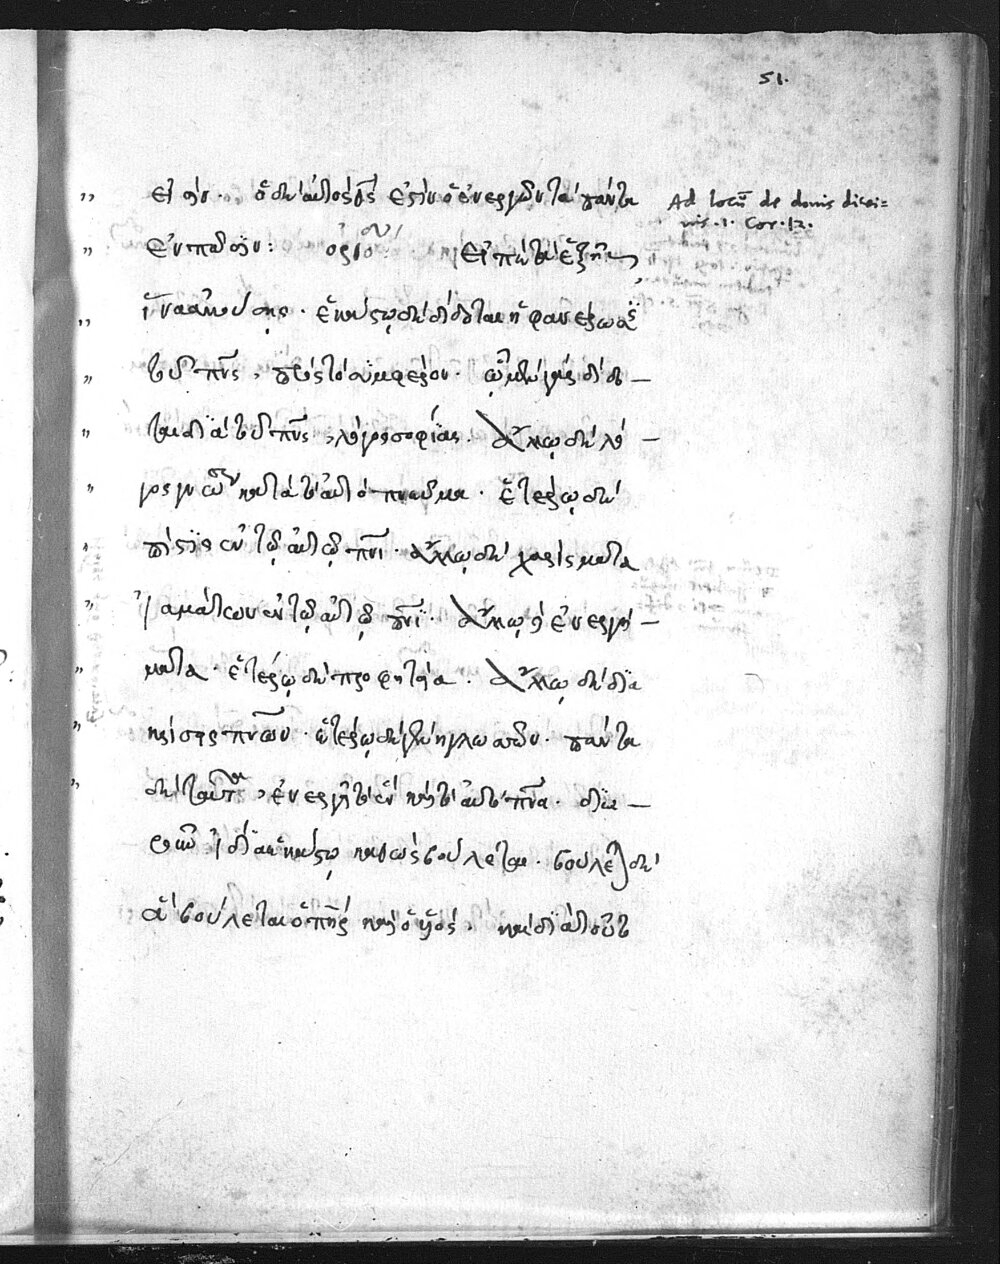 51.
Ad locũ de donis divi=
nis. 1. Cor. 12.
εἰσίν· ὁ δὲ αὐτὸς θς ἐστιν ὁ ἐνεργῶν τὰ πάντα
ἐν πᾶσιν: εἶπὲ τὰ ἑξῆς,
ἵνα ἀκούσῃς· ἑκάστῳ δὲ δίδοται ἡ φανέρωσις
τοῦ πνς, πρὸς τὸ συμφέρον· ᾧ μὲν γὰρ δίδο–
ται διὰ τοῦ πνς, λόγος σοφίας· ἄλλῳ δὲ λό–
γος γνώσεως κατὰ τὸ αὐτὸ πνεῦμα· ἑτέρῳ δὲ
πίστις ἐν τῷ αὐτῷ πνι· ἄλλῳ δὲ χαρίσματα
ἰαμάτων ἐν τῷ αὐτῷ πνι· ἄλλῳ δὲ ἐνεργή–
ματα· ἑτέρῳ δὲ προφητεία· ἄλλῳ δὲ δια
κρίσεις πνων· ἑτέρῳ δὲ γένη γλωσσῶν· πάντα
δὲ ταῦτα, ἐνεργεῖ τὸ ἓν καὶ τὸ αὐτὸ πνα· διαι–
ροῦν ἰδίᾳ ἑκάστῳ καθὼς βούλεται· βούλεται δὲ
ἃ βούλεται ὁ πηρ καὶ ὁ υἱός, καὶ διὰ τοῦτο